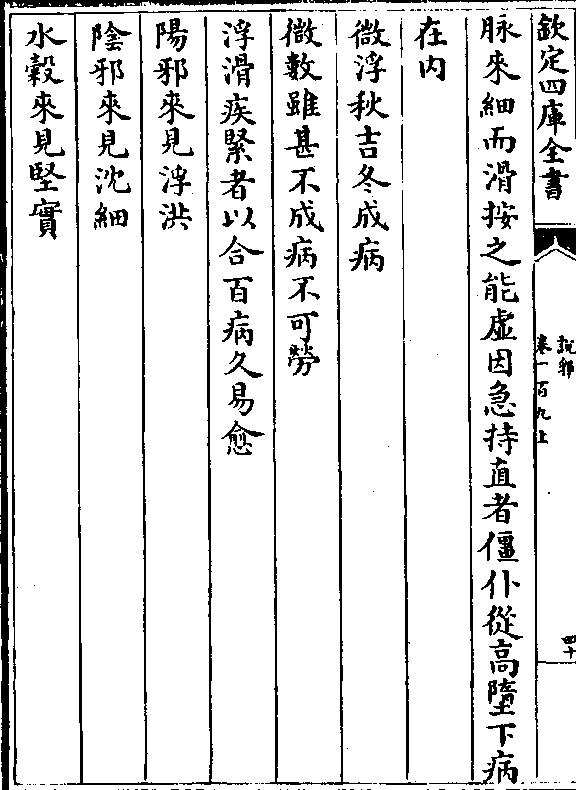 欽定四庫全書
說郛
卷一百九上
四十
脉來細而滑按之能虛因急持直者僵仆從高墮下病
在内
微浮秋吉冬成病
微數雖甚不成病不可勞
浮滑疾緊者以合百病久易愈
陽邪來見浮洪
陰邪來見沈細
水穀來見堅實